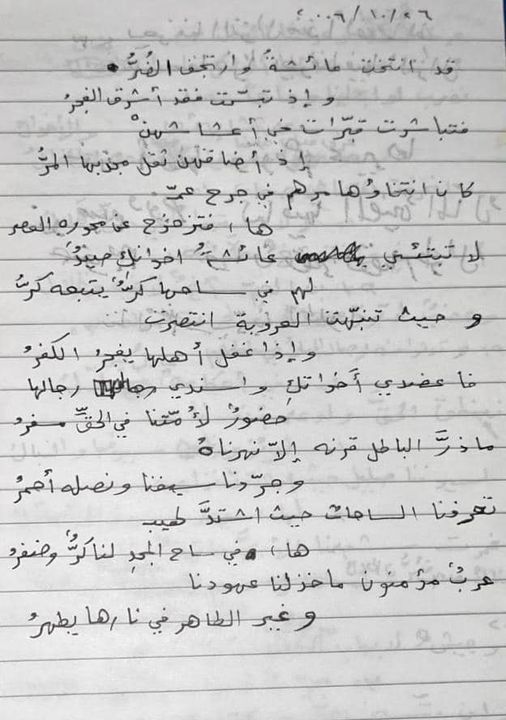 ٢٠٠٦/١٠/٢٦
قد انتخت عائشةُ وارتجف الضُرُّ
وإذ تبسّمت فقد أشرق الفجرُ
فتباشرت قبّرات في أعشاشهنّ
إذ أضاقهن ثقل المرُّ
كان انتخاؤها مرهم في جرح عزّ
ها، فتزحزح عن محوره العصر
لا تبتئسي عائشةُ اخوانكِ صيدٌ
لهم في ساحها كرٌّ يتبعه كرٌّ
و حيث تنبّهت العروبة انتصرت
وإذا غفل أهلها يفجرُ الكفرُ
فاعضدي أخواتكِ واسندي رجالها
حضورٌ لأمّتنا في الحقّ
ماذرَّ الباطل قرنه إلاّ نهرناهُ
وجرّدنا سيفنا ونصله أحمرُ
تعرفنا الساحات حيث اشتدَّ
ها، في ساح المجدِ لنا كرٌّ
عربٌ مؤمنون ماخذلنا عهودنا
وغير الطاهر في نارها يطهرُ